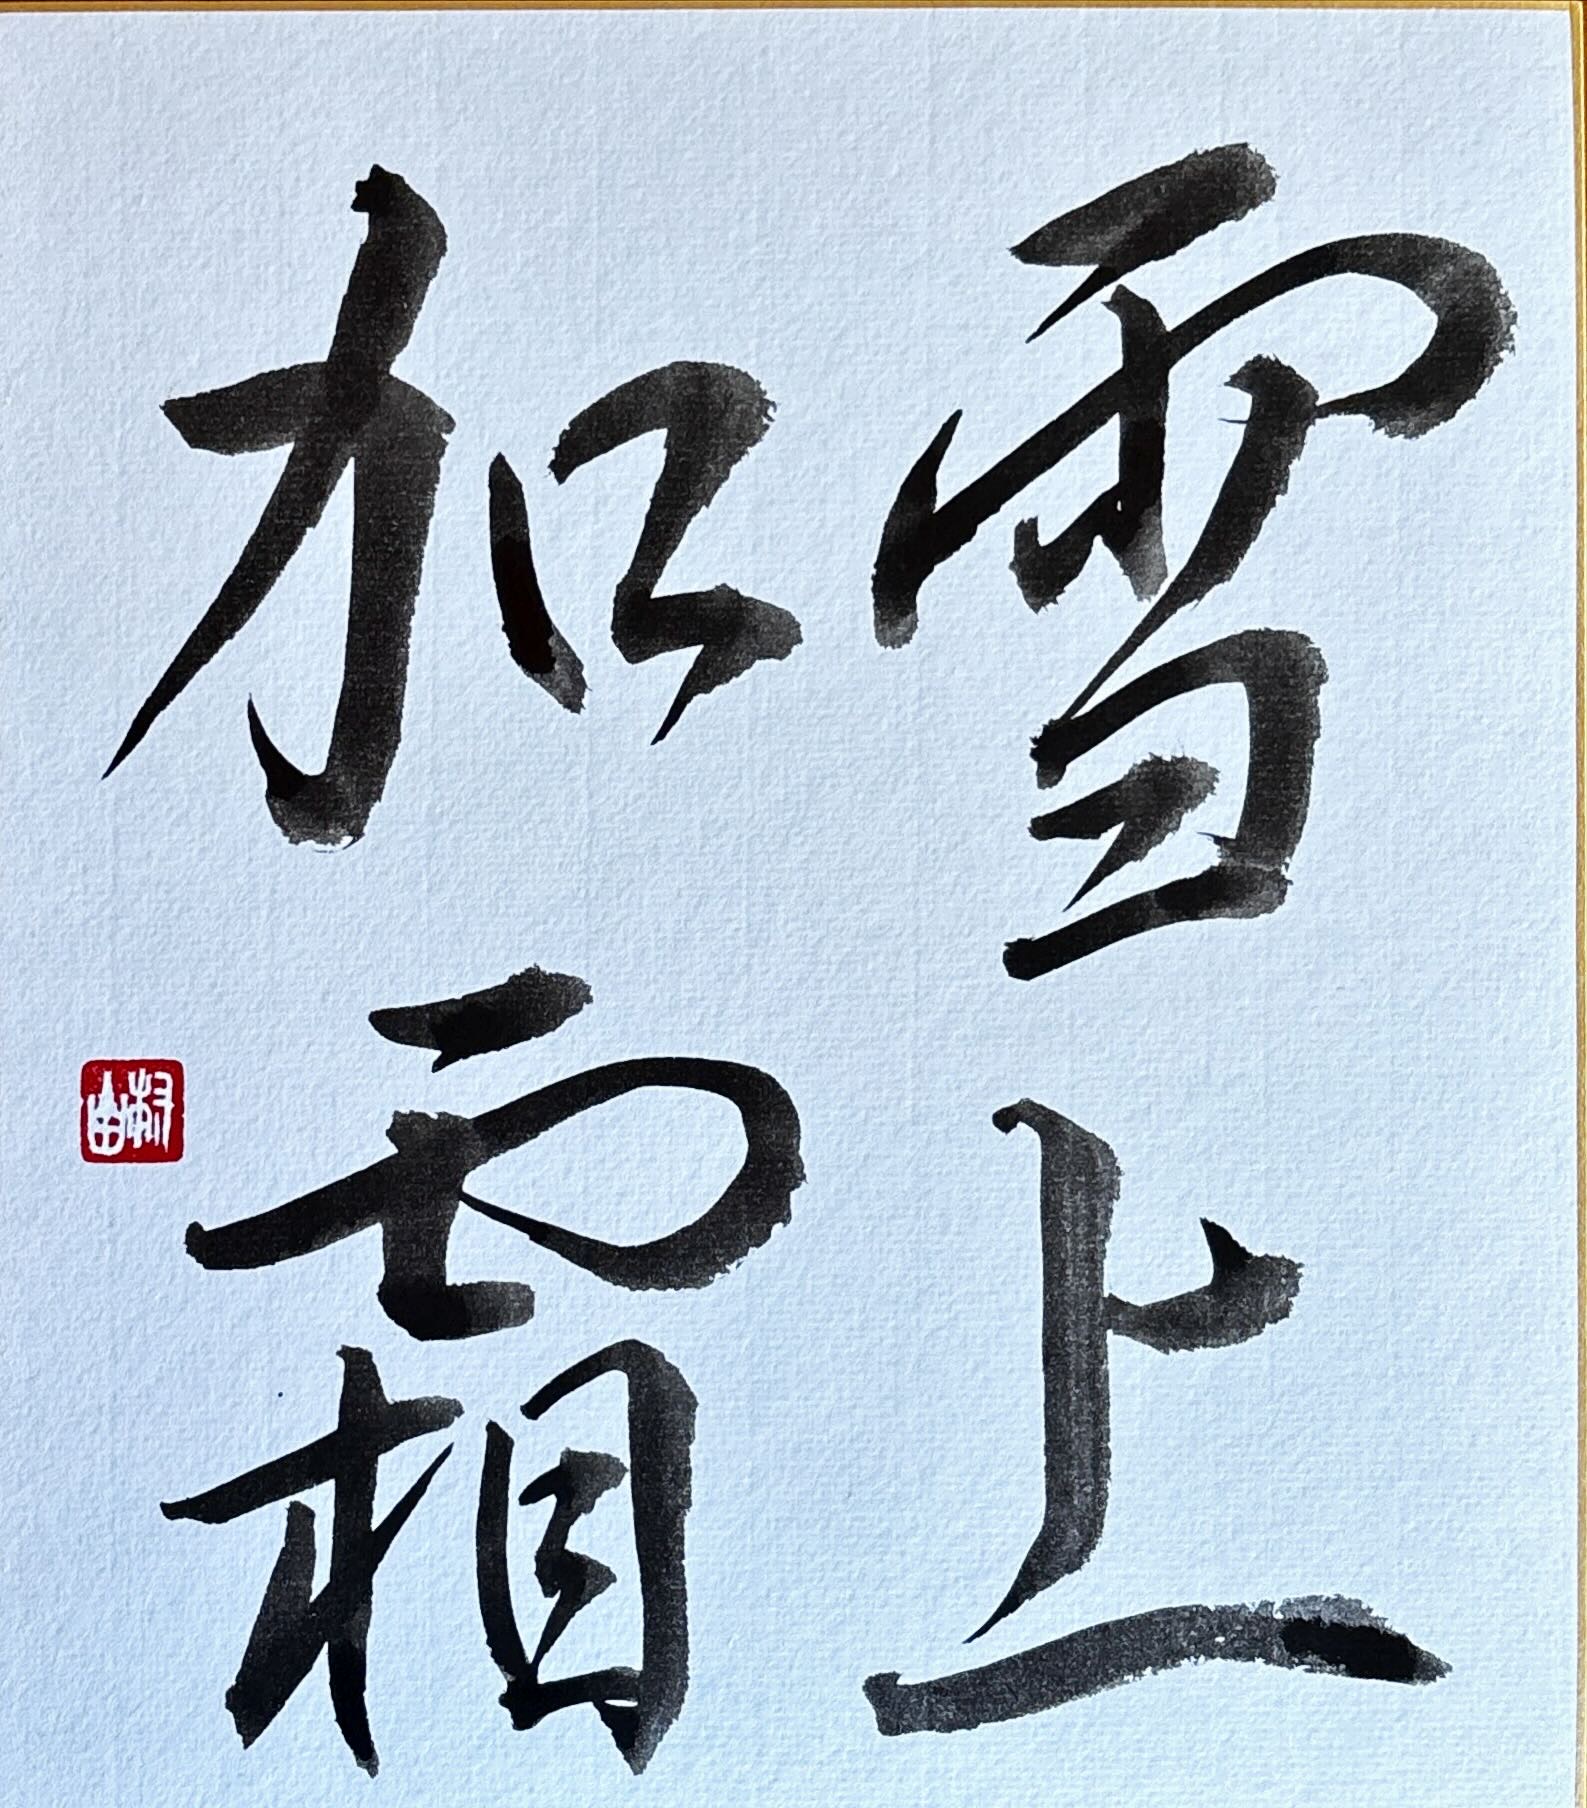 雪上
加霜